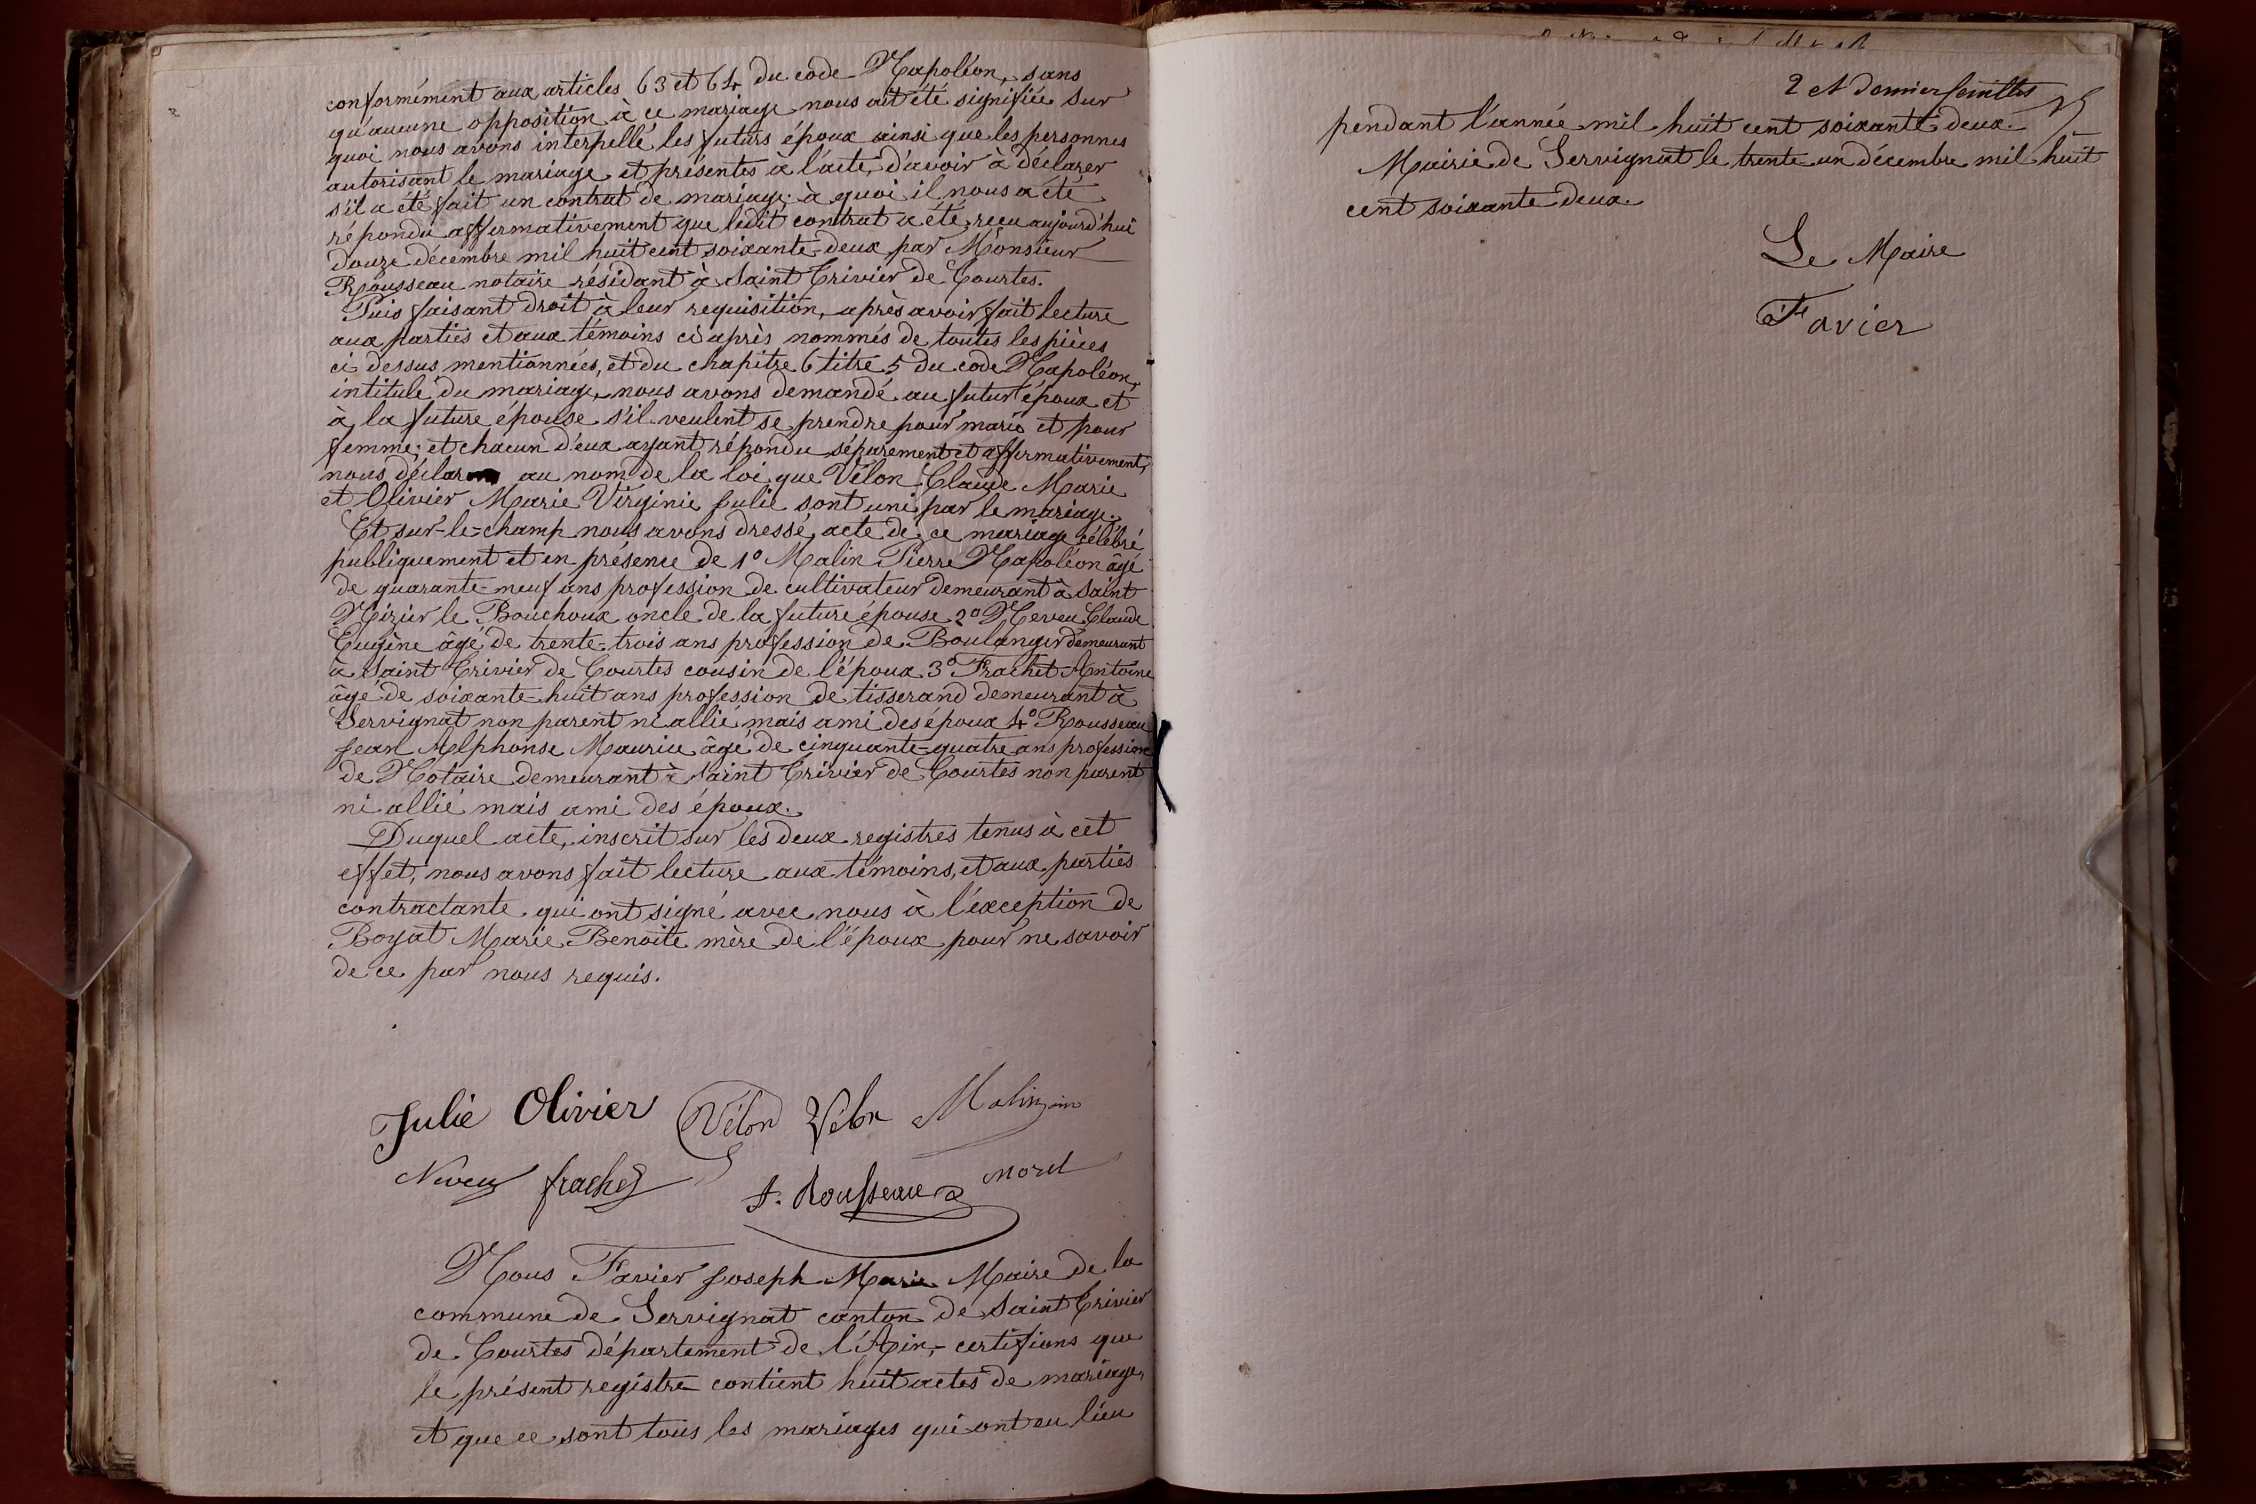 conformément aux articles 63 et 64 du code Napoléon, sans
qu'aucune opposition à ce mariage nous ait été signifiée sur
quoi nous avons interpellé les futurs époux ainsi que les personnes
autorisant le mariage et présentes à l'acte, d'avoir à déclarer
s'il a été fait un contrat de mariage à quoi il nous a été
répondu affirmativement que ledit contrat a été reçu aujourd'hui
douze décembre mil huit cent soixante-deux par Monsieur
Rousseau notaire résidant à Saint Trivier de Courtes.
Puis faisant droit à leur requisition, après avoir fait lecture
aux parties et aux témoins ci après nommés de toutes les pièces
ci dessus mentionnées, et du chapitre 6 titre 5 du code Napoléon,
intitulé du mariage, nous avons demandé au futur époux et
à la future épouse s'il veulent se prendre pour mari et pour
femme; et chacun d'eux ayant répondu séparement et affirmativement,
nous déclarons au nom de la loi que Vélon Claude Marie
et Olivier Marie Virginie Julie sont uni par le mariage.
Et sur-le-champ nous avons dressé acte de ce mariage célébré
publiquement et en présence de 1º Malin Pierre Napoléon âgé
de quarante-neuf ans profession de cultivateur demeurant à Saint
Nizier le Bouchoux oncle de la future épouse 2º Neveu Claude
Eugène âgé de trente-trois ans profession de Boulanger demeurant
à Saint Trivier de Courtes cousin de l'époux 3º Frachet Antoine
âgé de soixante-huit ans profession de tisserand demeurant à
Servignat non parent ni allié mais ami des époux 4º Rousseau
Jean Alphonse Maurice âgé de cinquante-quatre ans profession
de Notaire demeurant à Saint Trivier de Courtes non parent
ni allié mais ami des époux.
Duquel acte, inscrit sur les deux registres tenus à cet
effet, nous avons fait lecture aux témoins, et aux parties
contractante qui ont signé avec nous à l'exception de
Boyat Marie Benoite mère de l'époux pour ne savoir
de ce par nous requis.
Julie Olivier Vélon Vélon Malin
Neveu frachet A. Rousseau morel
Nous Favier Joseph Marie Maire de la
commune de Servignat canton de Saint Trivier
de Courtes département de l'Ain, certifions que
le présent registre contient huit actes de mariage,
et que ce sont tous les mariages qui ont eu lieu
2 et dernier feuillet
pendant l'année mil huit cent soixante deux.
Mairie de Servignat le trente un décembre mil huit
cent soixante deux.
Le Maire
Favier